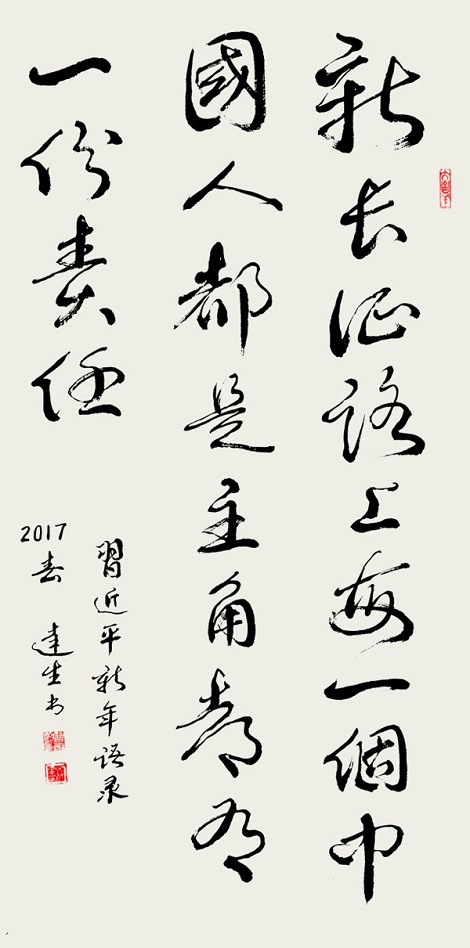 新长征路上每一個中
國人都是主角都有
一份责任
習近平新年语录
2017
春 達生书